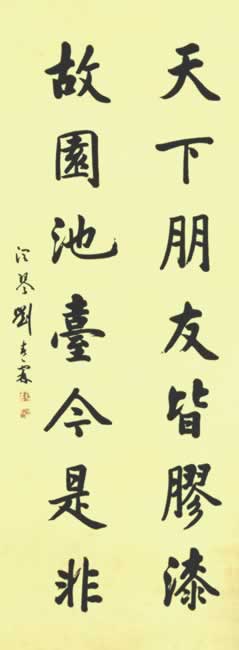 天下朋友皆膠漆
故園池臺今是非
劉春霖